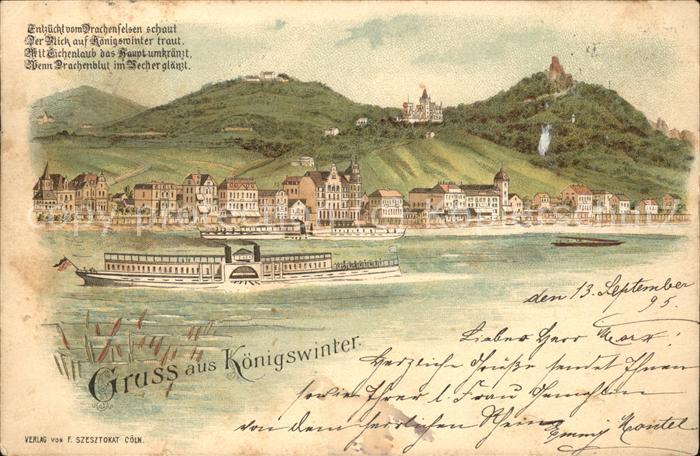 Entzückt vom Drachenfelsen schaut
Der Blick auf Königswinter traut,
Mit Eichenlaub das Haupt umkränzt,
Wenn Drachenblut im Becher glänzt.
den 13. September
95.
Lieber Herr Marx!
Herzliche Grüße sendet Ihnen
sowie Ihrer l. Frau Gemahlin
von dem herrlichen Rhein
Emmy Mantel
Gruss aus Königswinter.
VERLAG VON F. SZESZTOKAT CÖLN.